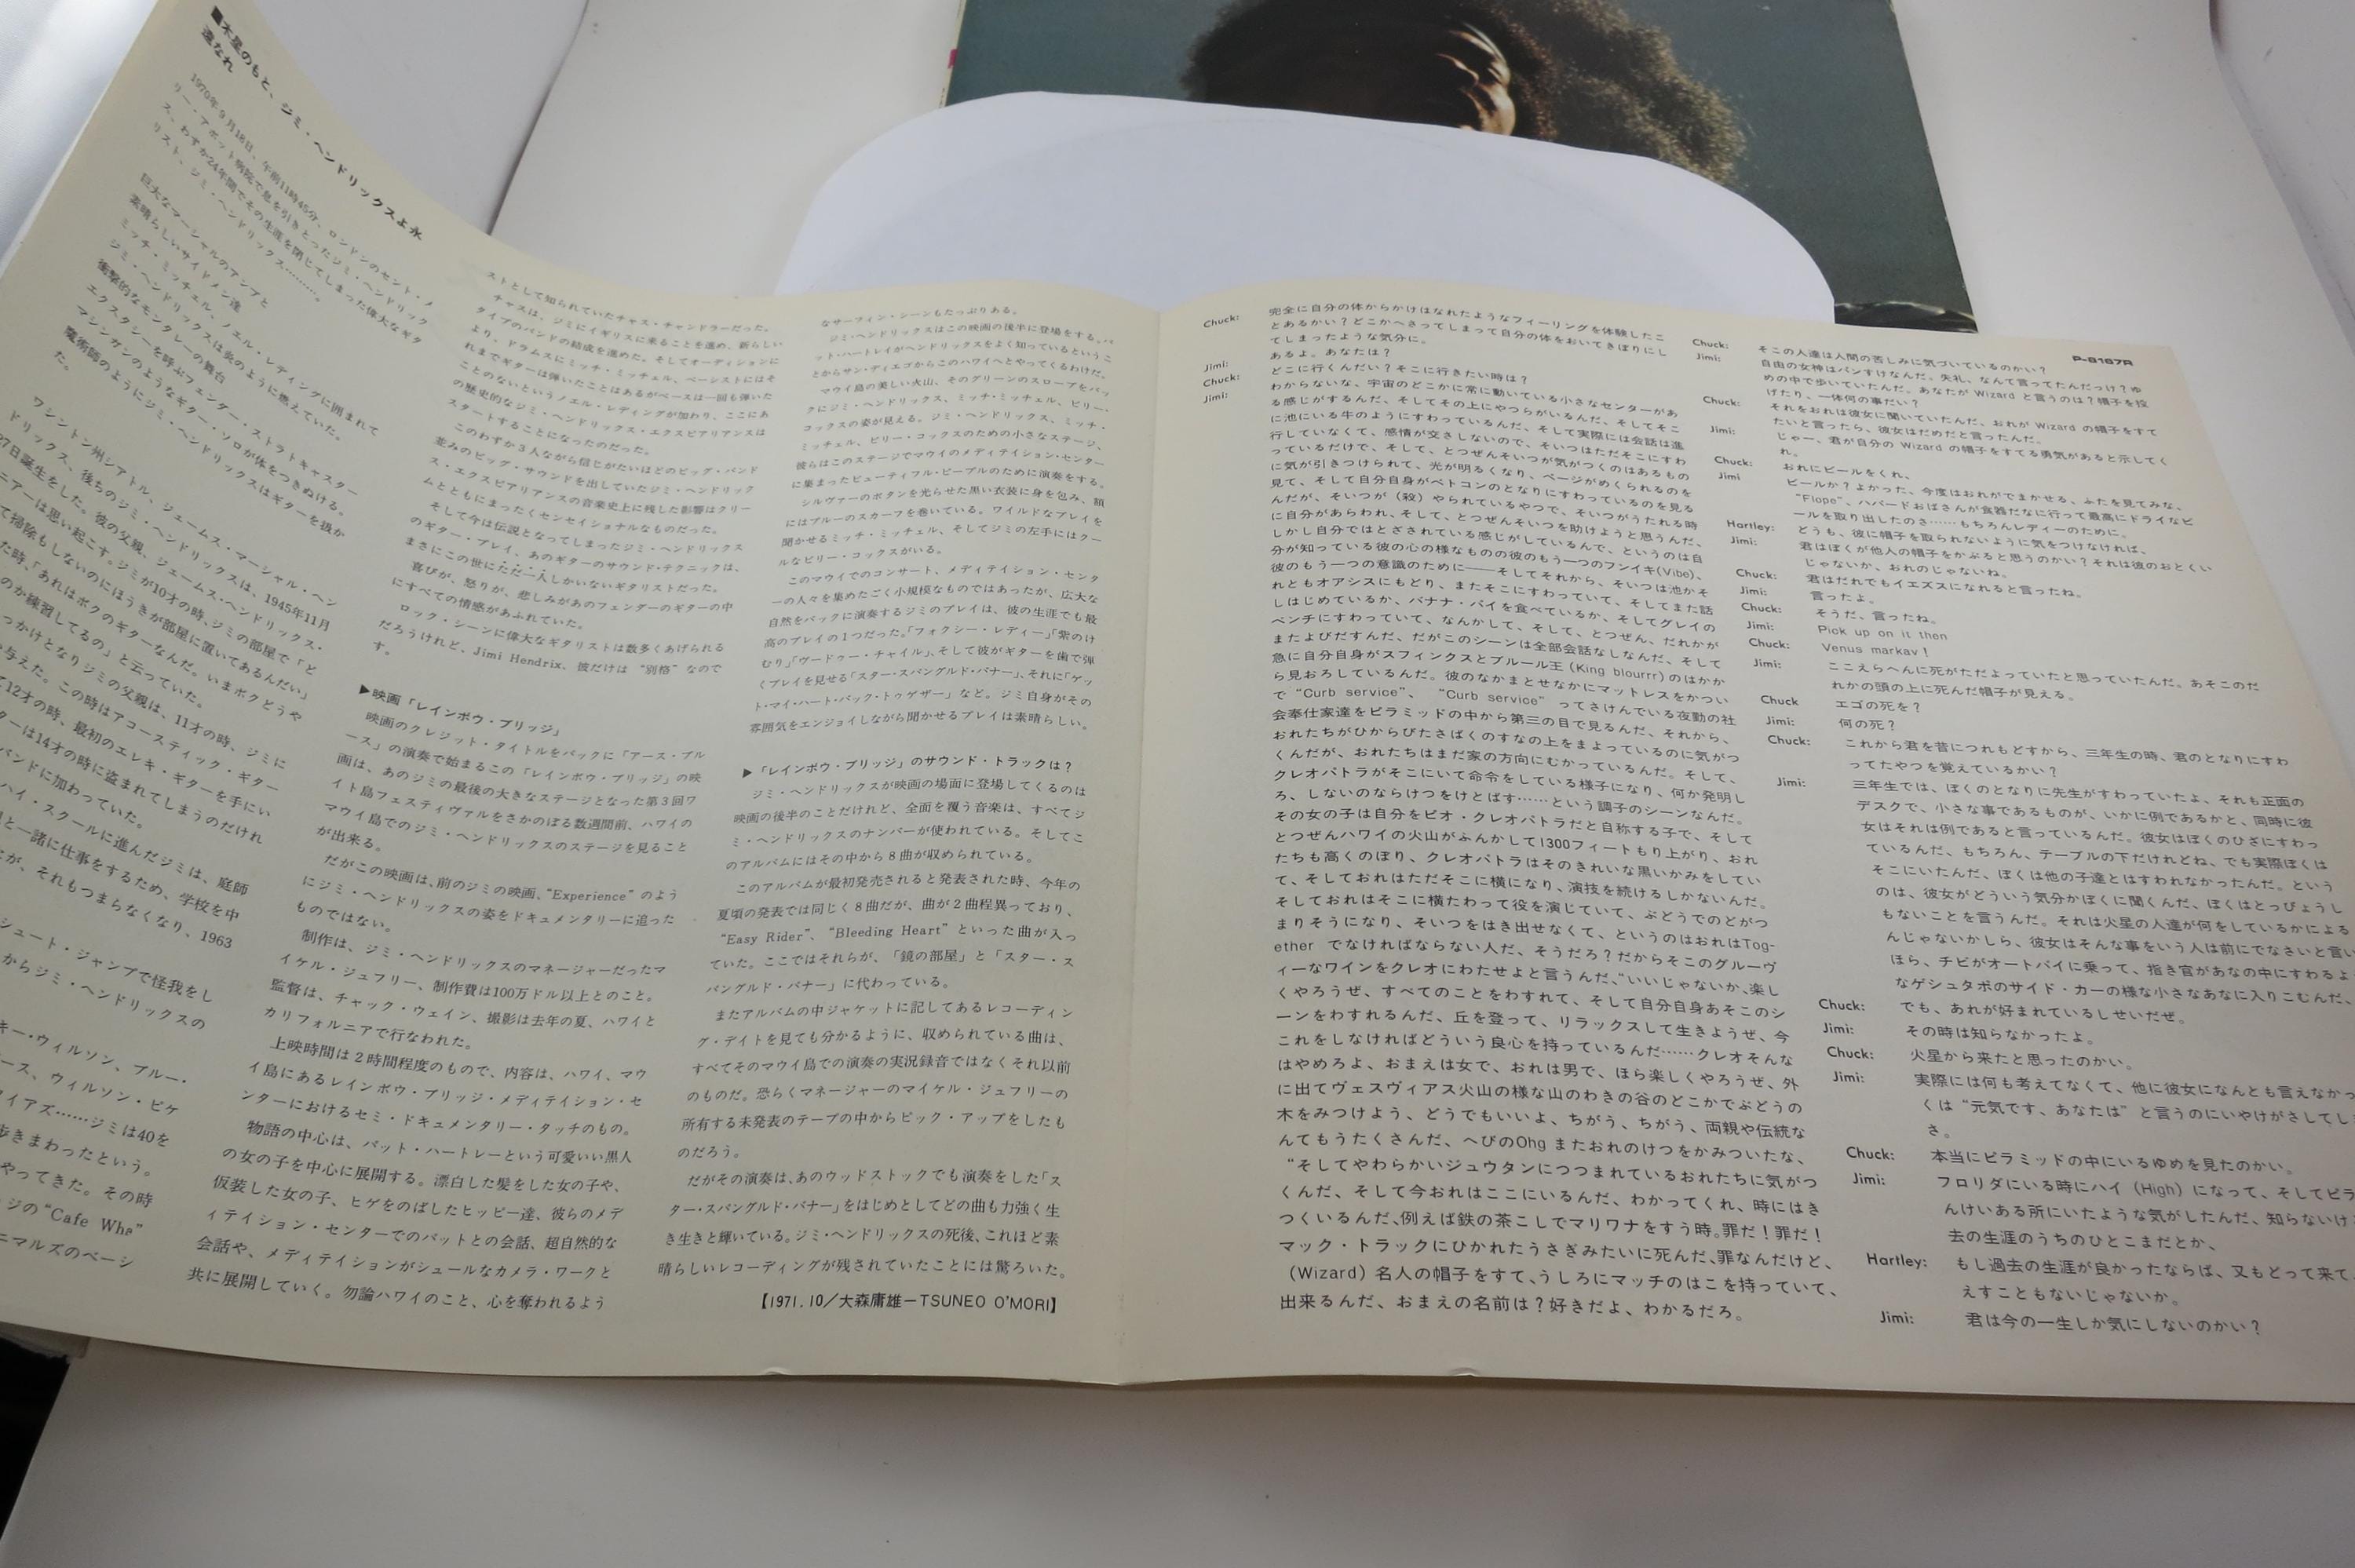 ■木星のもと、ジミ・ヘンドリックスよ永
遠なれ
1970年9月18日、午前11時45分、ロンドンのセント・メ
リー・アボット病院で息を引きとったジミ・ヘンドリック
ス、わずか24年間でその生涯を閉じてしまった偉大なギタ
リスト、ジミ・ヘンドリックス…………。
巨大なマーシャルのアンプと
素晴らしいサイドメン達
ミッチ・ミッチェル、ノエル・レディングに囲まれて
ジミ・ヘンドリックスは炎のように燃えていた。
衝撃的なモンタレーの舞台
エクスタシーを呼ぶフェンダー・ストラトキャスター
マシンガンのようなギター・ソロが体をつきぬける。
魔術師のようにジミ・ヘンドリックスはギターを扱か
た。
ワシントン州シアトル、ジェームス・マーシャル・ヘン
ドリックス、後ちのジミ・ヘンドリックスは、1945年11月
27日誕生をした。彼の父親、ジェームス・ヘンドリックス・
ニアーは思い起こす。ジミが10才の時、ジミの部屋で「ど
て掃除もしないのにほうきが部屋に置いてあるんだい」
た時、「あれはボクのギターなんだ。いまボクどうや
のか練習してるの」と云っていた。
っかけとなりジミの父親は、11才の時、ジミに
与えた。この時はアコースティック・ギター
て12才の時、最初のエレキ・ギターを手にい
ターは14才の時に盗まれてしまうのだけれ
バンドに加わっていた。
ハイ・スクールに進んだジミは、庭師
と一緒に仕事をするため、学校を中
が、それもつまらなくなり、1963
シュート・ジャンプで怪我をし
からジミ・ヘンドリックスの
キー・ウィルソン、ブルー・
ース、ウィルソン・ピケ
イアズ……ジミは40を
歩きまわったという。
やってきた。その時
ジの“Cafe Wha”
ニマルズのベーシ
ストとして知られていたチャス・チャンドラーだった。
チャスは、ジミにイギリスに来ることを進め、新らしい
タイプのバンドの結成を進めた。そしてオーディションに
より、ドラムスにミッチ・ミッチェル、ベーシストにはそ
れまでギターは弾いたことはあるがベースは一回も弾いた
ことのないというノエル・レディングが加わり、ここにあ
の歴史的なジミ・ヘンドリックス・エクスピアリアンスは
スタートすることになったのだった。
このわずか3人ながら信じがたいほどのビッグ・バンド
並みのビッグ・サウンドを出していたジミ・ヘンドリック
ス・エクスピアリアンスの音楽史上に残した影響はクリー
ムとともにまったくセンセイショナルなものだった。
そして今は伝説となってしまったジミ・ヘンドリックス
のギター・プレイ、あのギターのサウンド・テクニックは、
まさにこの世にただ一人しかいないギタリストだった。
喜びが、怒りが、悲しみがあのフェンダーのギターの中
にすべての情感があふれていた。
ロック・シーンに偉大なギタリストは数多くあげられる
だろうけれど、Jimi Hendrix、彼だけは“別格”なので
す。
▶映画「レインボウ・ブリッジ」
映画のクレジット・タイトルをバックに「アース・ブル
ース」の演奏で始まるこの「レインボウ・ブリッジ」の映
画は、あのジミの最後の大きなステージとなった第3回ワ
イト島フェスティヴァルをさかのぼる数週間前、ハワイの
マウイ島でのジミ・ヘンドリックスのステージを見ること
が出来る。
だがこの映画は、前のジミの映画、“Experience”のよう
にジミ・ヘンドリックスの姿をドキュメンタリーに追った
ものではない。
制作は、ジミ・ヘンドリックスのマネージャーだったマ
イケル・ジェフリー、制作費は100万ドル以上とのこと。
監督は、チャック・ウェイン、撮影は去年の夏、ハワイと
カリフォルニアで行なわれた。
上映時間は2時間程度のもので、内容は、ハワイ、マウ
イ島にあるレインボウ・ブリッジ・メディテイション・セ
ンターにおけるセミ・ドキュメンタリー・タッチのもの。
物語の中心は、パット・ハートレーという可愛いい黒人
の女の子を中心に展開する。漂白した髪をした女の子や、
仮装した女の子、ヒゲをのばしたヒッピー達、彼らのメデ
ィテイション・センターでのパットとの会話、超自然的な
会話や、メディテイションがシュールなカメラ・ワークと
共に展開していく。勿論ハワイのこと、心を奪われるよう
なサーフィン・シーンもたっぷりある。
ジミ・ヘンドリックスはこの映画の後半に登場をする。パ
ット・ハートレイがヘンドリックスをよく知っているというこ
とからサン・ディエゴからこのハワイへとやってくるわけだ。
マウイ島の美しい火山、そのグリーンのスロープをバッ
クにジミ・ヘンドリックス、ミッチ・ミッチェル、ビリー・
コックスの姿が見える。ジミ・ヘンドリックス、ミッチ・
ミッチェル、ビリー・コックスのための小さなステージ、
彼らはこのステージでマウイのメディテイション・センター
に集まったビューティフル・ピープルのために演奏をする。
シルヴァーのボタンを光らせた黒い衣装に身を包み、額
にはブルーのスカーフを巻いている。ワイルドなプレイを
聞かせるミッチ・ミッチェル、そしてジミの左手にはクー
ルなビリー・コックスがいる。
このマウイでのコンサート、メディテイション・センタ
ーの人々を集めたごく小規模なものではあったが、広大な
自然をバックに演奏するジミのプレイは、彼の生涯でも最
高のプレイの1つだった。「フォクシー・レディー」「紫のけ
むり」「ヴードゥー・チャイル」、そして彼がギターを歯で弾
くプレイを見せる「スター・スパングルド・バナー」、それに「ゲッ
ト・マイ・ハート・バック・トゥゲザー」など。ジミ自身がその
雰囲気をエンジョイしながら聞かせるプレイは素晴らしい。
▶「レインボウ・ブリッジ」のサウンド・トラックは？
ジミ・ヘンドリックスが映画の場面に登場してくるのは
映画の後半のことだけれど、全面を覆う音楽は、すべてジ
ミ・ヘンドリックスのナンバーが使われている。そしてこ
のアルバムにはその中から8曲が収められている。
このアルバムが最初発売されると発表された時、今年の
夏頃の発表では同じく8曲だが、曲が2曲程異っており、
“Easy Rider”、“Bleeding Heart”といった曲が入っ
ていた。ここではそれらが、「鏡の部屋」と「スター・ス
パングルド・バナー」に代わっている。
またアルバムの中ジャケットに記してあるレコーディン
グ・デイトを見ても分かるように、収められている曲は、
すべてそのマウイ島での演奏の実況録音ではなくそれ以前
のものだ。恐らくマネージャーのマイケル・ジェフリーの
所有する未発表のテープの中からピック・アップをしたも
のだろう。
だがその演奏は、あのウッドストックでも演奏をした「ス
ター・スパングルド・バナー」をはじめとしてどの曲も力強く生
き生きと輝いている。ジミ・ヘンドリックスの死後、これほど素
晴らしいレコーディングが残されていたことには驚ろいた。
【1971.10／大森庸雄－TSUNEO O'MORI】
Chuck: 完全に自分の体からかけはなれたようなフィーリングを体験したこ
とあるかい？どこかへさってしまって自分の体をおいてきぼりにし
てしまったような気分に。
Jimi: あるよ。あなたは？
Chuck: どこに行くんだい？そこに行きたい時は？
Jimi: わからないな、宇宙のどこかに常に動いている小さなセンターがあ
る感じがするんだ、そしてその上にやつらがいるんだ、そしてそこ
に池にいる牛のようにすわっているんだ、そして実際には会話は進
行していなくて、感情が交さしないので、そいつはただそこにすわ
っているだけで、そして、とつぜんそいつが気がつくのはあるもの
に気が引きつけられて、光が明るくなり、ページがめくられるのを
見て、そして自分自身がベトコンのとなりにすわっているのを見る
んだが、そいつが（殺）やられているやつで、そいつがうたれる時
に自分があらわれ、そして、とつぜんそいつを助けようと思うんだ、
しかし自分ではとざされている感じがしているんで、というのは自
分が知っている彼の心の様なものの彼のもう一つのフンイキ(Vibe)、
彼のもう一つの意識のために――そしてそれから、そいつは池かそ
れともオアシスにもどり、またそこにすわっていて、そしてまた話
しはじめているか、バナナ・パイを食べているか、そしてグレイの
ベンチにすわっていて、なんかして、そして、とつぜん、だれかが
またよびだすんだ、だがこのシーンは全部会話なしなんだ、そして
急に自分自身がスフィンクスとブルール王（King blourrr）のはかか
ら見おろしているんだ。彼のなかまとせなかにマットレスをかつい
で“Curb service”、“Curb service”ってさけんでいる夜勤の社
会奉仕家達をピラミッドの中から第三の目で見るんだ、それから、
おれたちがひからびたさばくのすなの上をまよっているのに気がつ
くんだが、おれたちはまだ家の方向にむかっているんだ。そして、
クレオパトラがそこにいて命令をしている様子になり、何か発明し
ろ、しないのならけつをけとばす……という調子のシーンなんだ。
その女の子は自分をピオ・クレオパトラだと自称する子で、そして
とつぜんハワイの火山がふんかして1300フィートもり上がり、おれ
たちも高くのぼり、クレオパトラはそのきれいな黒いかみをしてい
て、そしておれはただそこに横になり、演技を続けるしかないんだ。
そしておれはそこに横たわって役を演じていて、ぶどうでのどがつ
まりそうになり、そいつをはき出せなくて、というのはおれはTog-
ether でなければならない人だ、そうだろ？だからそこのグルーヴ
ィーなワインをクレオにわたせよと言うんだ、“いいじゃないか、楽し
くやろうぜ、すべてのことをわすれて、そして自分自身あそこのシ
ーンをわすれるんだ、丘を登って、リラックスして生きようぜ、今
これをしなければどういう良心を持っているんだ……クレオそんな
はやめろよ、おまえは女で、おれは男で、ほら楽しくやろうぜ、外
に出てヴェスヴィアス火山の様な山のわきの谷のどこかでぶどうの
木をみつけよう、どうでもいいよ、ちがう、ちがう、両親や伝統な
んてもうたくさんだ、へびのOhg またおれのけつをかみついたな、
“そしてやわらかいジュウタンにつつまれているおれたちに気がつ
くんだ、そして今おれはここにいるんだ、わかってくれ、時にはき
つくいるんだ、例えば鉄の茶こしでマリワナをすう時。罪だ！罪だ！
マック・トラックにひかれたうさぎみたいに死んだ、罪なんだけど、
（Wizard）名人の帽子をすて、うしろにマッチのはこを持っていて、
出来るんだ、おまえの名前は？好きだよ、わかるだろ。
P-8167R
Chuck: そこの人達は人間の苦しみに気づいているのかい？
Jimi: 自由の女神はパンすけなんだ。失礼、なんて言ってたんだっけ？ゆ
めの中で歩いていたんだ。あなたが Wizard と言うのは？帽子を投
げたり、一体何の事だい？
Chuck: それをおれは彼女に聞いていたんだ、おれが Wizard の帽子をすて
たいと言ったら、彼女はだめだと言ったんだ。
Jimi: じゃー、君が自分の Wizard の帽子をすてる勇気があると示してく
れ。
Chuck: おれにビールをくれ、
Jimi ビールか？よかった、今度はおれがでまかせる、ふたを見てみな、
“Flope”、ハバードおばさんが食器だなに行って最高にドライなビ
ールを取り出したのさ……もちろんレディーのために。
Hartley: どうも、彼に帽子を取られないように気をつけなければ、
Jimi: 君はぼくが他人の帽子をかぶると思うのかい？それは彼のおとくい
じゃないか、おれのじゃないね。
Chuck: 君はだれでもイエズスになれると言ったね。
Jimi: 言ったよ。
Chuck: そうだ、言ったね。
Jimi: Pick up on it then
Chuck: Venus markav！
Jimi: ここえらへんに死がただよっていたと思っていたんだ。あそこのだ
れかの頭の上に死んだ帽子が見える。
Chuck エゴの死を？
Jimi: 何の死？
Chuck: これから君を昔につれもどすから、三年生の時、君のとなりにすわ
ってたやつを覚えているかい？
Jimi: 三年生では、ぼくのとなりに先生がすわっていたよ、それも正面の
デスクで、小さな事であるものが、いかに例であるかと、同時に彼
女はそれは例であると言っているんだ。彼女はぼくのひざにすわっ
ているんだ、もちろん、テーブルの下だけれどね、でも実際ぼくは
そこにいたんだ、ぼくは他の子達とはすわれなかったんだ。という
のは、彼女がどういう気分かぼくに聞くんだ、ぼくはとっぴょうし
もないことを言うんだ。それは火星の人達が何をしているかによる
んじゃないかしら、彼女はそんな事をいう人は前にでなさいと言い
ほら、チビがオートバイに乗って、指き官があなの中にすわるよ
なゲシュタポのサイド・カーの様な小さなあなに入りこむんだ、
Chuck: でも、あれが好まれているしせいだぜ。
Jimi: その時は知らなかったよ。
Chuck: 火星から来たと思ったのかい。
Jimi: 実際には何も考えてなくて、他に彼女になんとも言えなかっ
くは“元気です、あなたは”と言うのにいやけがさしてし
さ。
Chuck: 本当にピラミッドの中にいるゆめを見たのかい。
Jimi: フロリダにいる時にハイ（High）になって、そしてピラ
んけいある所にいたような気がしたんだ、知らないけ
去の生涯のうちのひとこまだとか、
Hartley: もし過去の生涯が良かったならば、又もどって来て、
えすこともないじゃないか。
Jimi: 君は今の一生しか気にしないのかい？